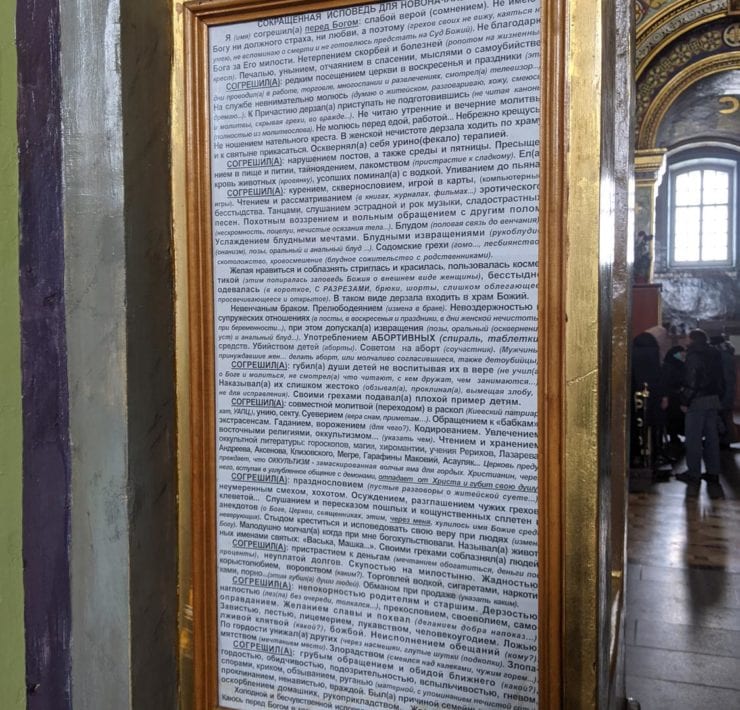 СОКРАЩЕННАЯ ИСПОВЕДЬ ДЛЯ
Я (имя) согрешил(а) перед Богом: слабой верой (сомнением). Не имею
Богу ни должного страха, ни любви, а поэтому (грехов своих не вижу, каяться н
умею, не вспоминаю о смерти и не готовлюсь предстать на Суд Божий). Не благодарю
Бога за Его милости. Нетерпением скорбей и болезней (ропотом на жизненны
крест). Печалью, унынием, отчаянием в спасении, мыслями о самоубийстве
СОГРЕШИЛ(А): редким посещением церкви в воскресенья и праздники (эт
дни проводил(а) в работе, торговле, многоспании и развлечениях, смотрел(а) телевизор...)
На службе невнимательно молюсь (думаю о житейском, разговариваю, хожу, смеюсь
дремаю...). К Причастию дерзал(а) приступать не подготовившись (не читая канон
и молитвы, скрывая грехи, во вражде...). Не читаю утренние и вечерние молитвы
(полностью из молитвослова). Не молюсь перед едой, работой... Небрежно крещусь
Не ношением нательного креста. В женской нечистоте дерзала ходить по храму
и к святыне прикасаться. Осквернял(а) себя урино(фекало) терапией.
СОГРЕШИЛ(А): нарушением постов, а также среды и пятницы. Пресыще
нием в пище и питии, тайноядением, лакомством (пристрастие к сладкому). Ел(а)
кровь животных (кровянку), усопших поминал(а) с водкой. Упиванием до пьяна
СОГРЕШИЛ(А): курением, сквернословием, игрой в карты, (компьютерны
игры). Чтением и рассматриванием (в книгах, журналах, фильмах...) эротического
бесстыдства. Танцами, слушанием эстрадной и рок музыки, сладострастных
песен. Похотным воззрением и вольным обращением с другим полом
(нескромность, поцелуи, нечистые осязания тела...). Блудом (половая связь до венчания)
Услаждением блудными мечтами. Блудными извращениями (рукоблудие
(онанизм), позы, оральный и анальный блуд ...). Содомские грехи (гомо..., лесбиянство
скотоложство, кровосмешение (блудное сожительство с родственниками).
Желая нравиться и соблазнять стриглась и красилась, пользовалась косме
тикой (этим попиралась заповедь Божия о внешнем виде женщины), бесстыдно
одевалась (в короткое, С РАЗРЕЗАМИ, брюки, шорты, слишком облегающее
просвечивающееся и открытое). В таком виде дерзала входить в храм Божий.
Невенчаным браком. Прелюбодеянием (измена в браке). Невоздержностью в
супружеских отношениях (в посты, в воскресенья и праздники, в дни женской нечистоты
при беременности..), при этом допускал(а) извращения (позы, оральный (осквернени
уст) и анальный блуд..). Употреблением АБОРТИВНЫХ (спираль, таблетки
средств. Убийством детей (аборты). Советом на аборт (соучастник). (Мужчины
принуждавшие жен... делать аборт, или молчаливо согласившиеся, также детоубийцы)
СОГРЕШИЛ(А): губил(а) души детей не воспитывая их в вере (не учил(а)
о Боге и молиться, не смотрел(а) что читают, с кем дружат, чем занимаются...)
Наказывал(а) их слишком жестоко (обзывал(а), проклинал(а), вымещая злобу,
не для исправления). Своими грехами подавал(а) плохой пример детям.
СОГРЕШИЛ(А): совместной молитвой (переходом) в раскол (Киевский патриар
хат, УАПЦ), унию, секту. Суеверием (вера снам, приметам...). Обращением к «бабкам»
экстрасенсам. Гаданием, ворожением (для чего?). Кодированием. Увлечением
восточными религиями, оккультизмом... (указать чем). Чтением и хранением
оккультной литературы: гороскопов, магии, хиромантии, учения Рерихов, Лазарева
Андреева, Аксенова, Клизовского, Мегре, Гарафины Маковий, Асауляк... Церковь преду
преждает, что ОККУЛЬТИЗМ - замаскированная волчья яма для гордых. Христианин, через
него, вступая в углубленное общение с демонами, отпадает от Христа и губит свою душу
СОГРЕШИЛ(А): празднословием (пустые разговоры о житейской суете...)
неумеренным смехом, хохотом. Осуждением, разглашением чужих грехов
клеветой... Слушанием и пересказом пошлых и кощунственных сплетен и
анекдотов (о Боге, Церкви, священниках, этим, через меня, хулилось имя Божие среди
неверующих). Стыдом креститься и исповедовать свою веру при людях (измен
Богу). Малодушно молчал(а) когда при мне богохульствовали. Называл(а) живот
ных именами святых: «Васька, Машка...». Своими грехами соблазнял(а) людей
СОГРЕШИЛ(А): пристрастием к деньгам (мечтанием обогатиться, деньги по
проценты), неуплатой долгов. Скупостью на милостыню. Жадностью
корыстолюбием, воровством (каким?). Торговлей водкой, сигаретами, наркоти
ками, порно...(этим губил(а) души людей). Обманом при продаже (указать каким).
СОГРЕШИЛ(А): непокорностью родителям и старшим. Дерзостью
наглостью (лез(ла) без очереди, толкался...), прекословием, своеволием, само
оправданием. Желанием славы и похвал (деланием добра напоказ...)
Завистью, лестью, лицемерием, лукавством, человекоугодием. Ложью
лживой клятвой (какой?), божбой. Неисполнением обещаний (кому?)
По гордости унижал(а) других (через насмешки, глупые шутки (подколки). Злопа-
мятством (мечтанием мести). Злорадством (смеялся над калеками, чужим горем...)
СОГРЕШИЛ(А): грубым обращением и обидой ближнего (какой?),
гордостью, обидчивостью, подозрительностью, вспыльчивостью, гневом,
спорами, криком, обзыванием, руганью (матерной, с упоминанием нечистой силы)
проклинанием, ненавистью, враждой. Был(а) причиной семейны
оскорблением домашних, рукоприкладством.
Холодной и бесчувственной
Каюсь перед Богом в